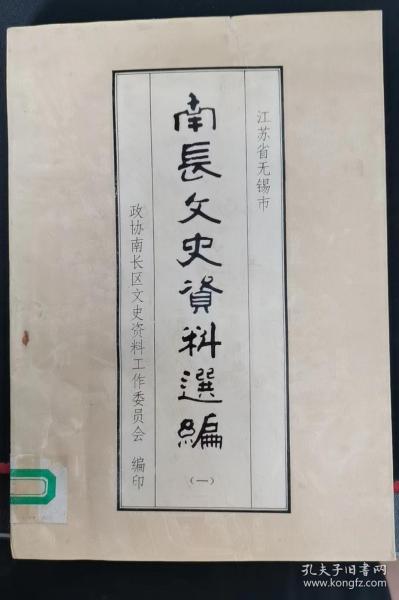 江苏省无锡市
南長文史資料選編
(一)
政协南长区文史资料工作委员会 编印
孔夫子旧书网
www.kongfz.com